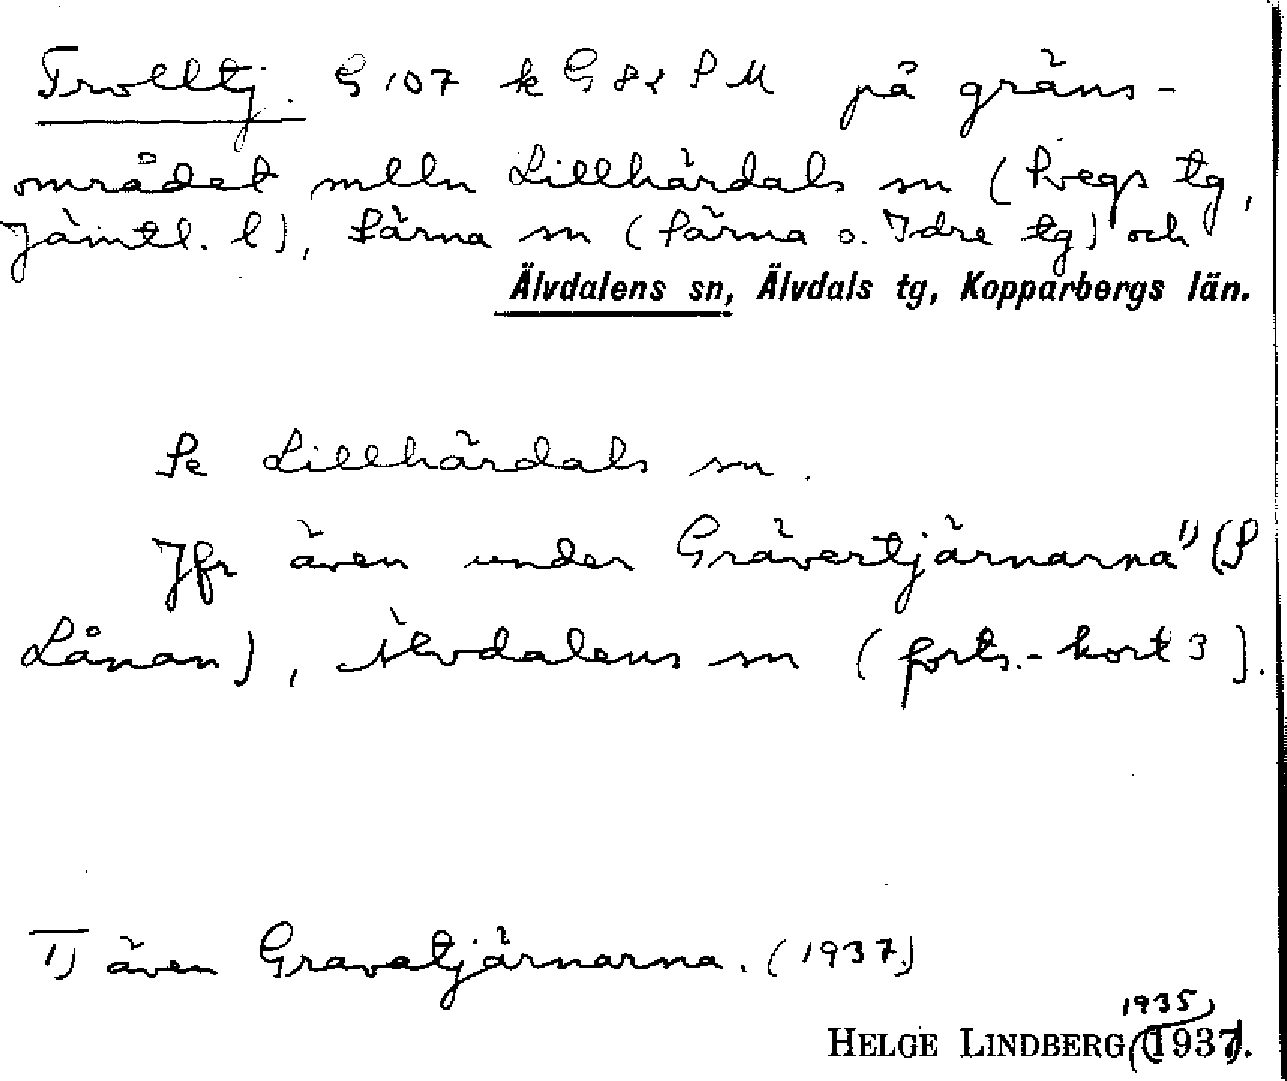 Trolltj. G 107 k G 82 S M på gräns-
området mlln Lillhärdals sn (Svegs tg,
Jämtl. l), Särna sn (Särna o. Idre tg) och
Älvdalens sn, Älvdals tg, Kopparbergs län.
Se Lillhärdals sn.
Jfr även under Grävertjärnarna 1) (S
Lånan), Älvdalens sn (forts.-kort 3).
1) även Gravatjärnarna. (1937)
1935,
HELGE LINDBERG (1937).